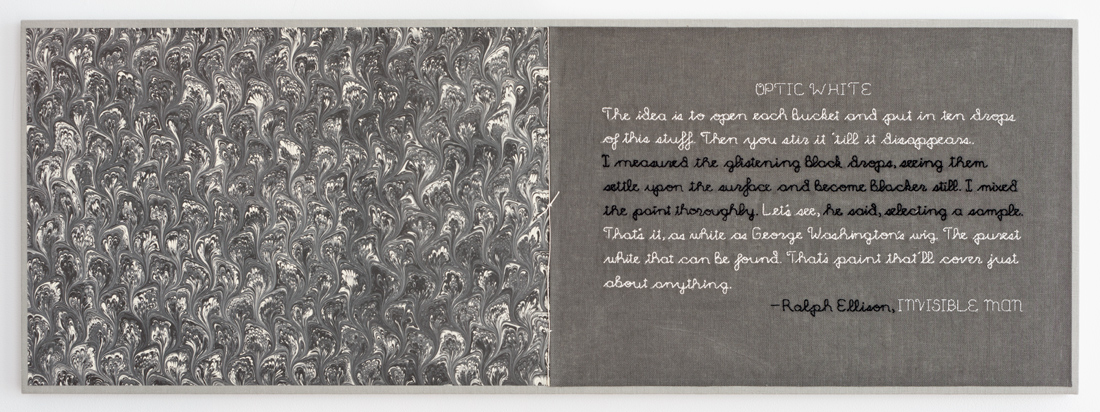 OPTIC WHITE
The idea is to open each bucket and put in ten drops
of this stuff. Then you stir it 'till it disappears.
I measured the glistening black drops, seeing them
settle upon the surface and become blacker still. I mixed
the paint thoroughly. Let's see, he said, selecting a sample.
That's it, as white as George Washington's wig. The purest
white that can be found. That's paint that'll cover just
about anything.
—Ralph Ellison, INVISIBLE MAN